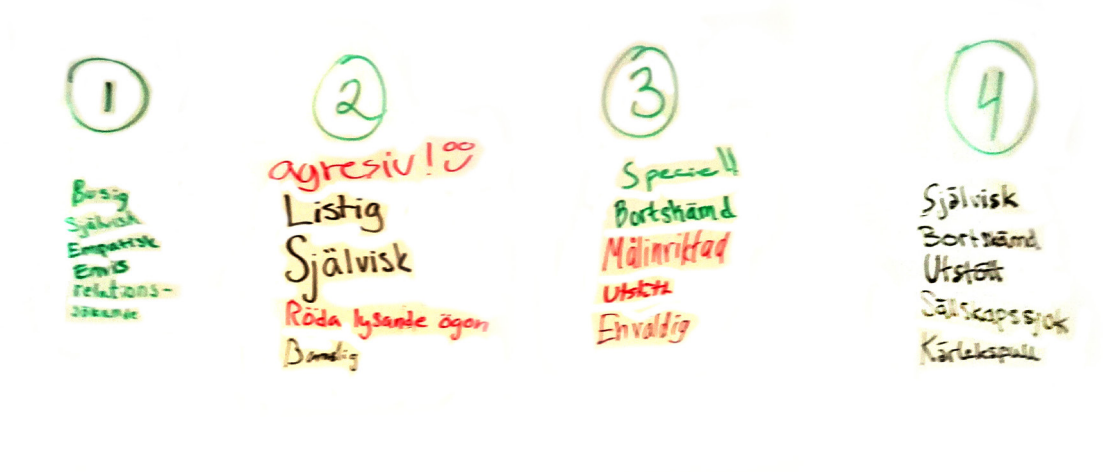 1
Busig
Självisk
Empatisk
Envis
relations-
sökande
2
agresiv!
Listig
Självisk
Röda lysande ögon
Barnslig
3
Speciell!
Bortskämd
Målinriktad
Envaldig
4
Självisk
Bortskämd
Utstött
Sällskapssjuk